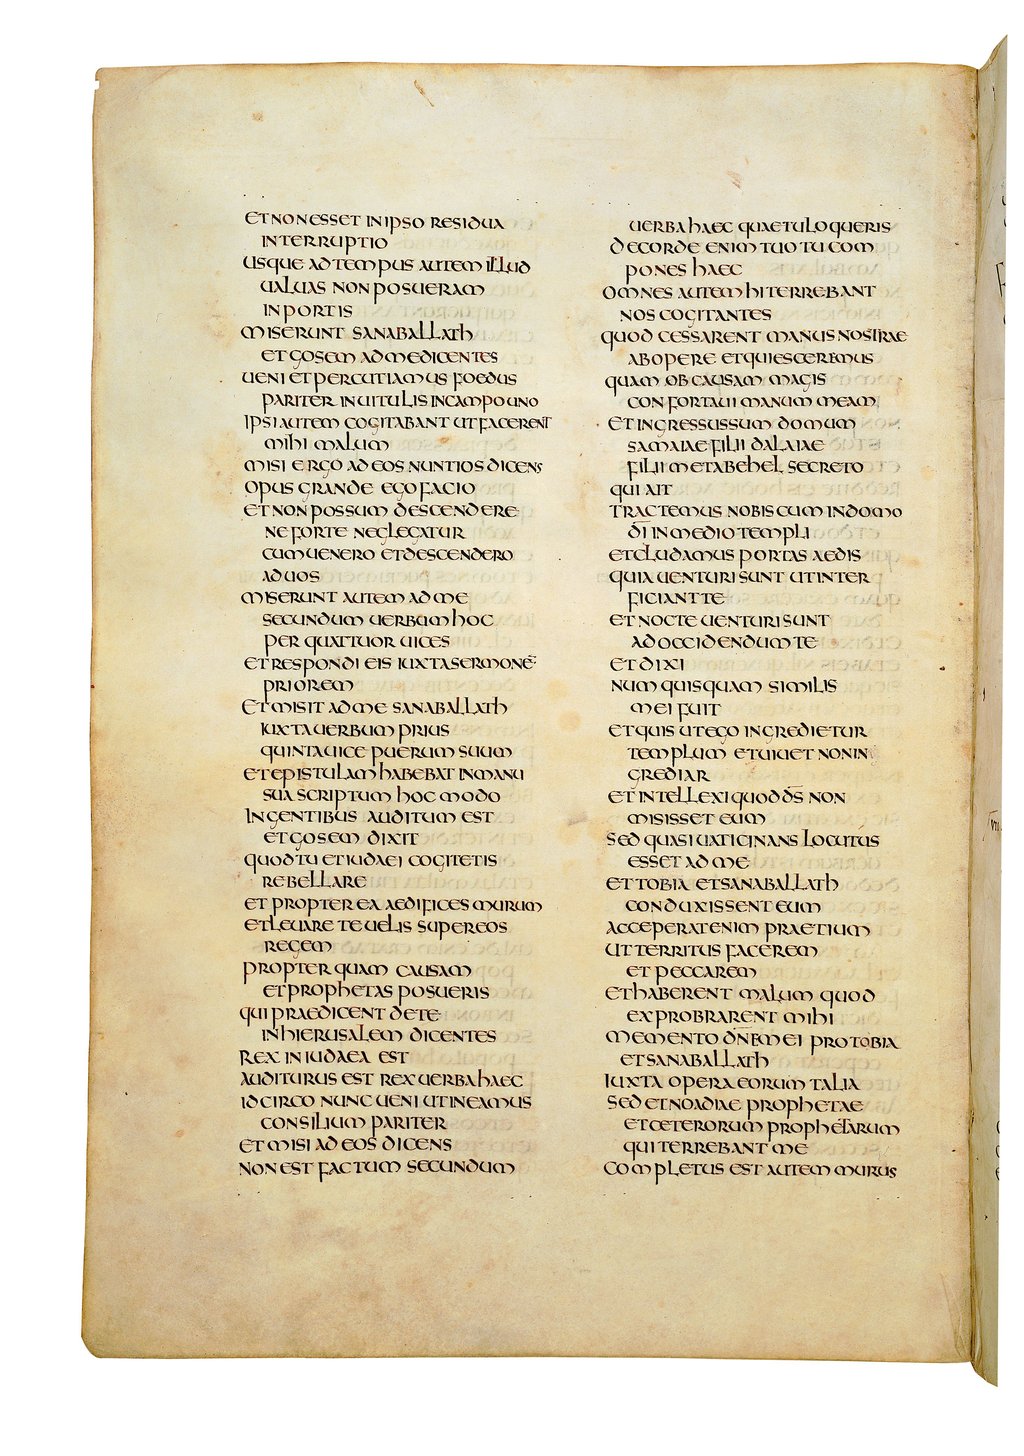 ET NON ESSET IN IPSO RESIDUA
INTERRUPTIO
USQUE AD TEMPUS AUTEM ILLUD
UALUAS NON POSUERAM
IN PORTIS
MISERUNT SANABALLATH
ET GOSEM AD ME DICENTES
UENI ET PERCUTIAMUS FOEDUS
PARITER IN UITULIS IN CAMPO UNO
IPSI AUTEM COGITABANT UT FACERENT
MIHI MALUM
MISI ERGO AD EOS NUNTIOS DICENS
OPUS GRANDE EGO FACIO
ET NON POSSUM DESCENDERE
NE FORTE NEGLEGATUR
CUM UENERO ET DESCENDERO
AD UOS
MISERUNT AUTEM AD ME
SECUNDUM UERBUM HOC
PER QUATTUOR UICES
ET RESPONDI EIS IUXTA SERMONĒ
PRIOREM
ET MISIT AD ME SANABALLATH
IUXTA UERBUM PRIUS
QUINTA UICE PUERUM SUUM
ET EPISTULAM HABEBAT IN MANU
SUA SCRIPTUM HOC MODO
IN GENTIBUS AUDITUM EST
ET GOSEM DIXIT
QUOD TU ET IUDAEI COGITETIS
REBELLARE
ET PROPTEREA AEDIFICES MURUM
ET LEUARE TE UELIS SUPER EOS
REGEM
PROPTER QUAM CAUSAM
ET PROPHETAS POSUERIS
QUI PRAEDICENT DE TE
IN HIERUSALEM DICENTES
REX IN IUDAEA EST
AUDITURUS EST REX UERBA HAEC
IDCIRCO NUNC UENI UT INEAMUS
CONSILIUM PARITER
ET MISI AD EOS DICENS
NON EST FACTUM SECUNDUM
UERBA HAEC QUAE TU LOQUERIS
DE CORDE ENIM TUO TU COM
PONES HAEC
OMNES AUTEM HI TERREBANT
NOS COGITANTES
QUOD CESSARENT MANUS NOSTRAE
AB OPERE ET QUIESCEREMUS
QUAM OB CAUSAM MAGIS
CONFORTAUI MANUM MEAM
ET INGRESSUS SUM DOMUM
SAMAIAE FILII DALAIAE
FILII METABEHEL SECRETO
QUI AIT
TRACTEMUS NOBISCUM IN DOMO
DĪ IN MEDIO TEMPLI
ET CLUDAMUS PORTAS AEDIS
QUIA UENTURI SUNT UT INTER
FICIANT TE
ET NOCTE UENTURI SUNT
AD OCCIDENDUM TE
ET DIXI
NUM QUISQUAM SIMILIS
MEI FUIT
ET QUIS UT EGO INGREDIETUR
TEMPLUM ET UIUET NON IN
GREDIAR
ET INTELLEXI QUOD D̄S NON
MISISSET EUM
SED QUASI UATICINANS LOCUTUS
ESSET AD ME
ET TOBIA ET SANABALLATH
CONDUXISSENT EUM
ACCEPERAT ENIM PRAETIUM
UT TERRITUS FACEREM
ET PECCAREM
ET HABERENT MALUM QUOD
EXPROBRARENT MIHI
MEMENTO DN̄E MEI PRO TOBIA
ET SANABALLATH
IUXTA OPERA EORUM TALIA
SED ET NOADIAE PROPHETAE
ET CETERORUM PROPHETARUM
QUI TERREBANT ME
COMPLETUS EST AUTEM MURUS